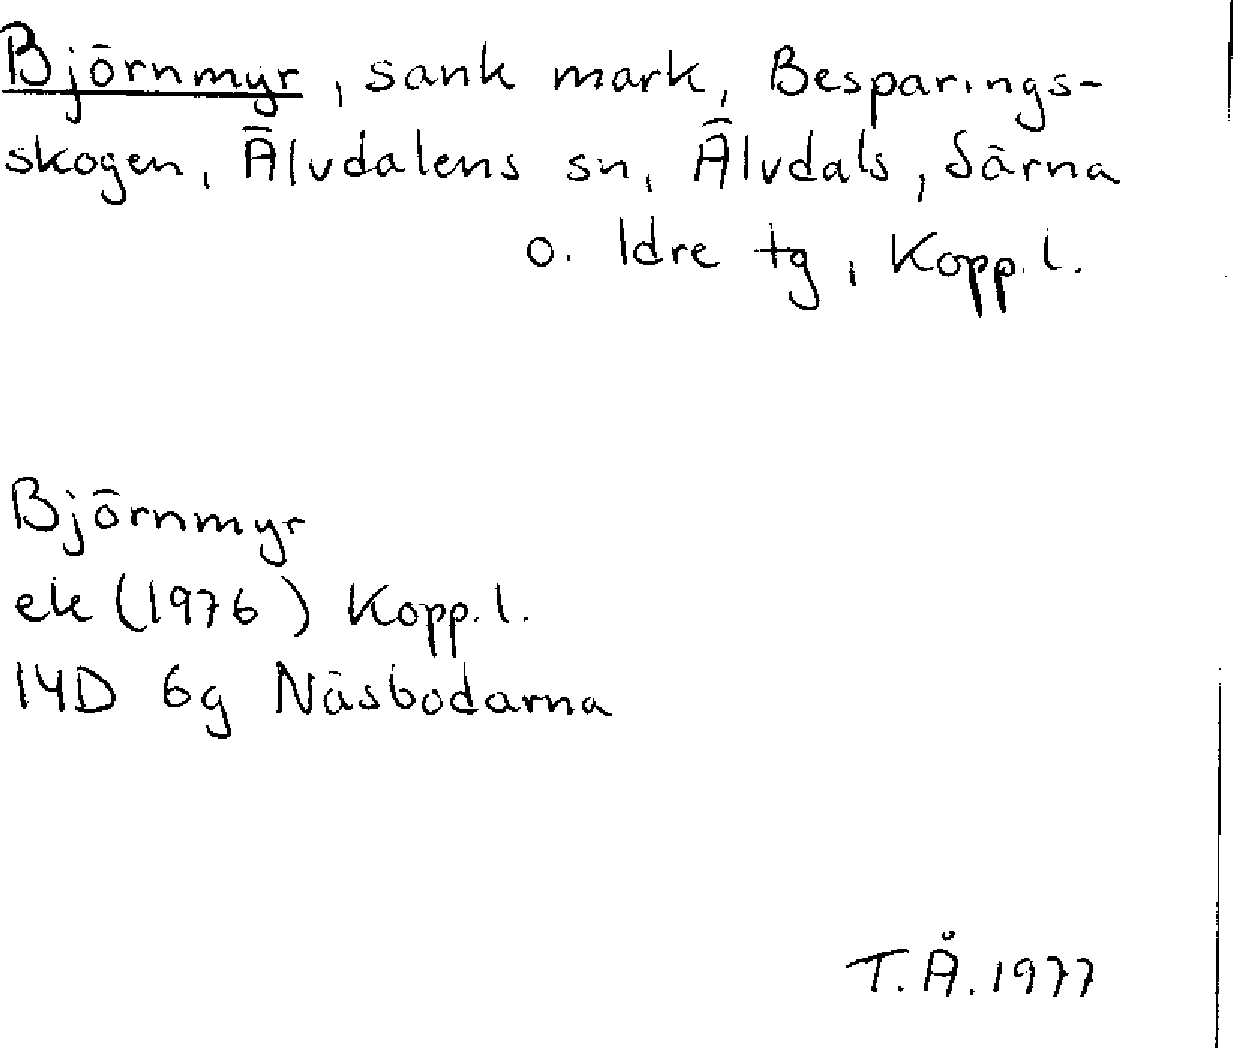 Björnmyr, sank mark, Besparings-
skogen, Älvdalens sn, Älvdals, Särna
o. Idre tg, Kopp. l.
Björnmyr
ek (1976) Kopp. l.
14D 6g Näsbodarna
T.Å. 1977